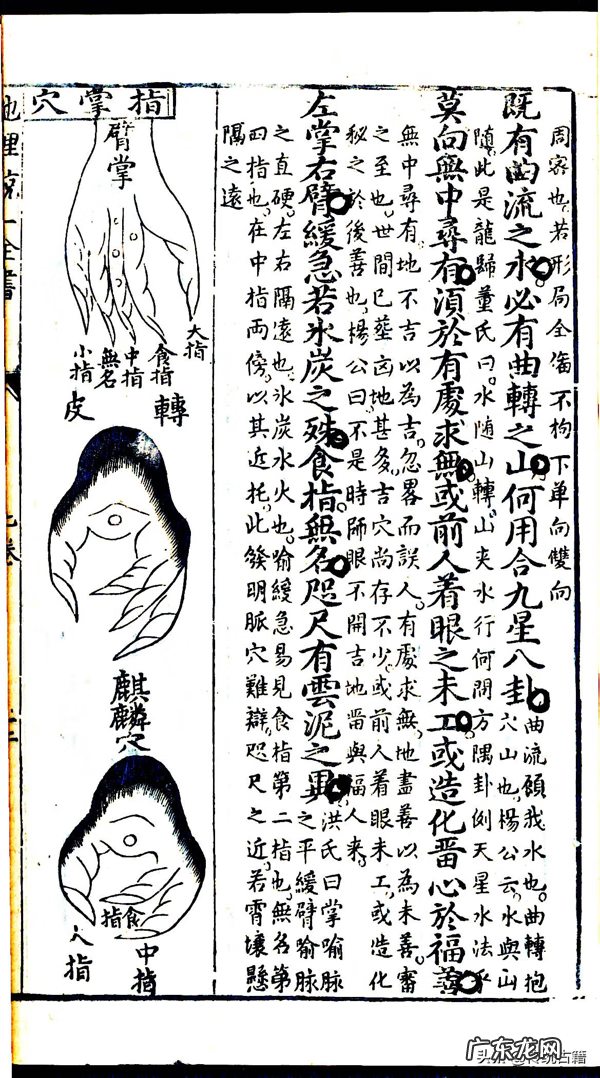 周宻也若形局全俻不拘下单向雙向
既有曲流之水必有曲轉之山何用合九星八卦
曲流顾我水也曲轉抱
穴山也楊公云水與山
随此是龍歸董氏曰水随山轉山夾水行何問方隅卦例天星水法乎
莫向無中尋有湏於有處求無或前人着眼之未工或造化畱心於福善
無中尋有地不吉以為吉忽畧而誤人有處求無地盡善以為未善審
之至也世間已塟凶地甚多吉穴尚存不少或前人着眼未工或造化
秘之於後善也楊公曰不是時師眼不開吉地畱與福人来
左掌右臂緩急若氷炭之殊食指無名咫尺有雲泥之異
洪氏曰掌喻脉
之平緩臂喻脉
之直硬左右隔遠也氷炭水火也喻緩急易見食指第二指也無名第
四指也在中指兩傍以其近托此發明脈穴難辯咫尺之近若霄壤懸
隔之遠
指掌穴
臂掌
大指
食指
中指
無名
小指
轉皮
麒麟穴
食指
中指
大指
地理統一全書
卷
广东龙网
头条 @传统古籍